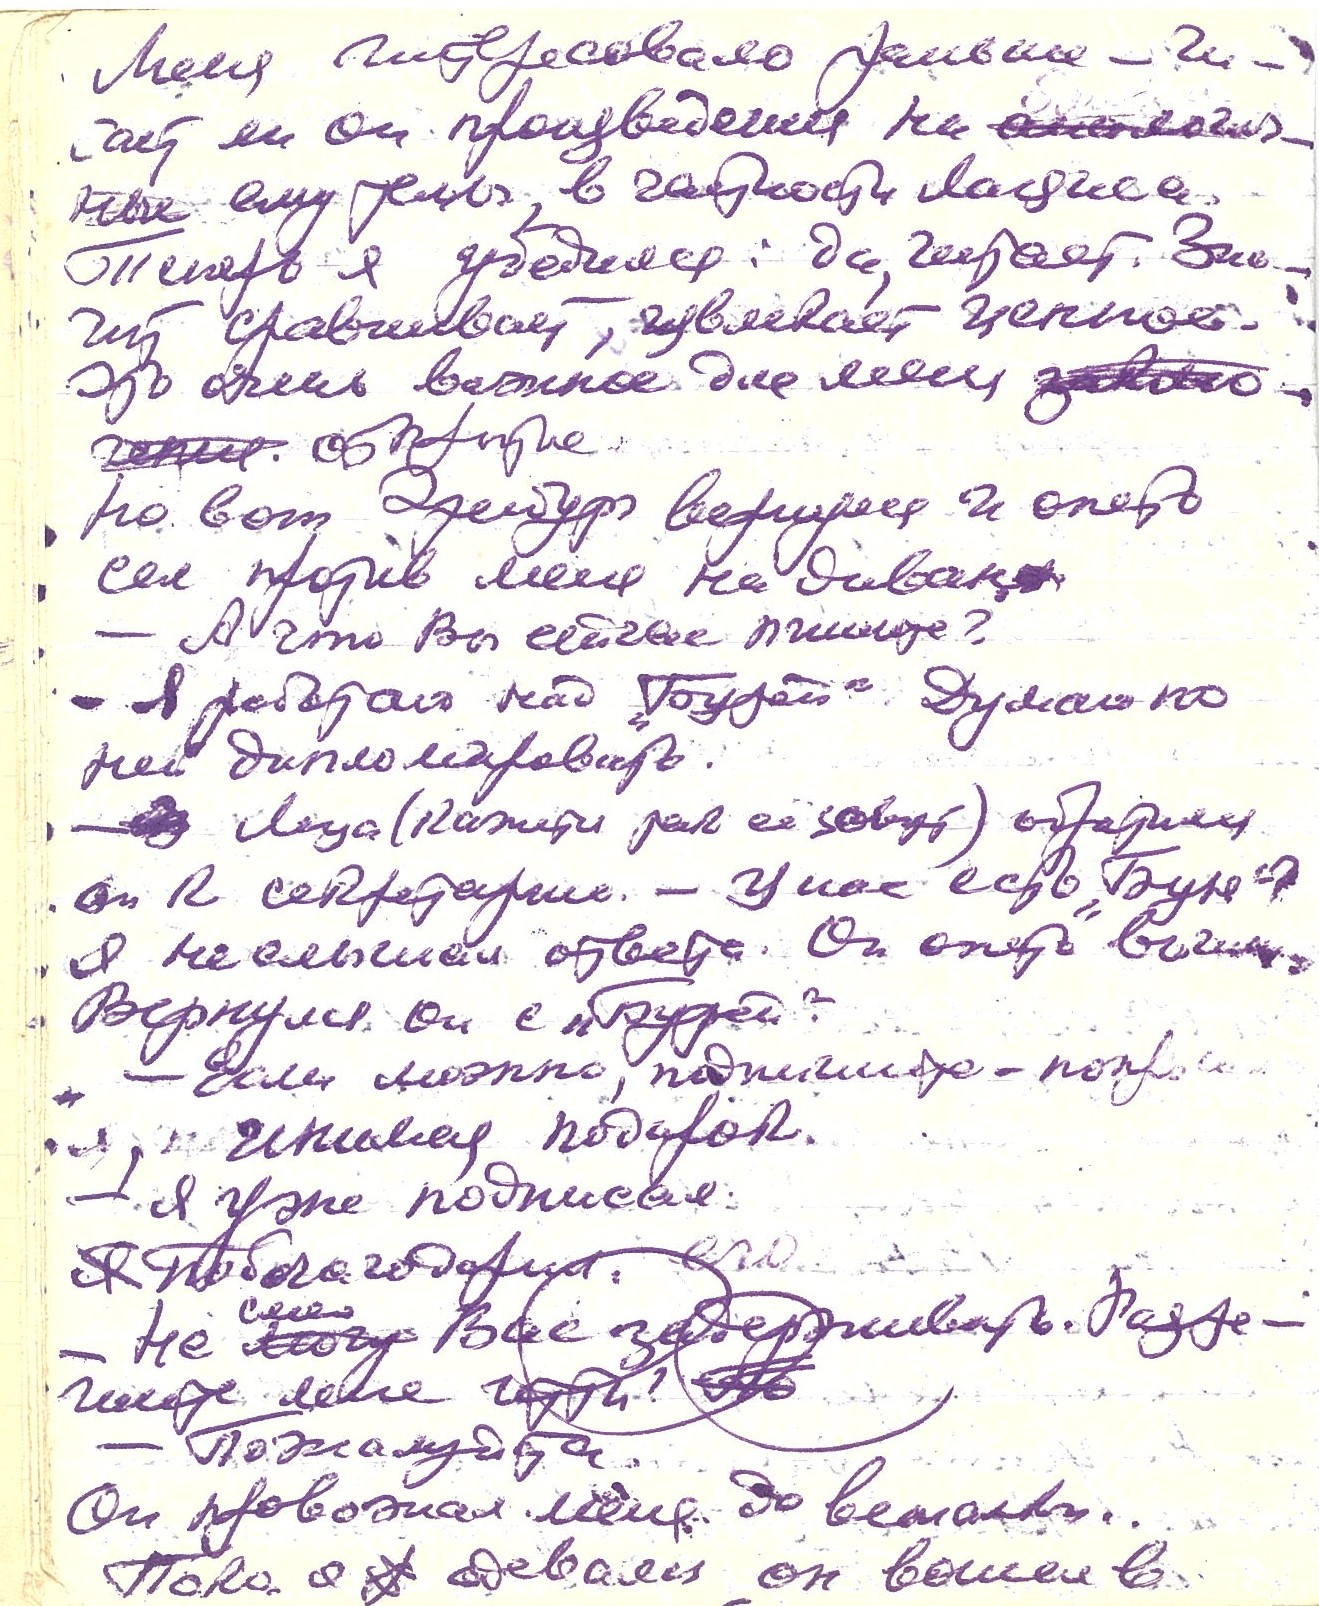 Меня интересовало раньше – чи-
тает ли он произведения на аналогич-
ные ему темы, в частности Лациса.
Теперь я убедился: да, читает. Зна-
чит сравнивает, извлекает ценное.
Это очень важное для меня заклю-
чение. открытие
Но вот Эренбург вернулся и опять
сел против меня на диван.
– А что Вы сейчас пишите?
– Я работаю над „Бурей“ Думаю по
ней дипломировать.
– Люца (кажется так ее зовут) обратился
он к секретарше. – У нас есть „Буря“?
Я не слышал ответа. Он опять вышел.
Вернулся он с „Бурей“
– Если можно, подпишите –
я, принимая подарок.
– Я уже подписал.
Я Поблагодарил. его
– Не могу смею Вас задерживать. Разре-
шите мне идти?
– Пожалуйста.
Он провожал меня до вешалки..
Пока я одевался он вошел в